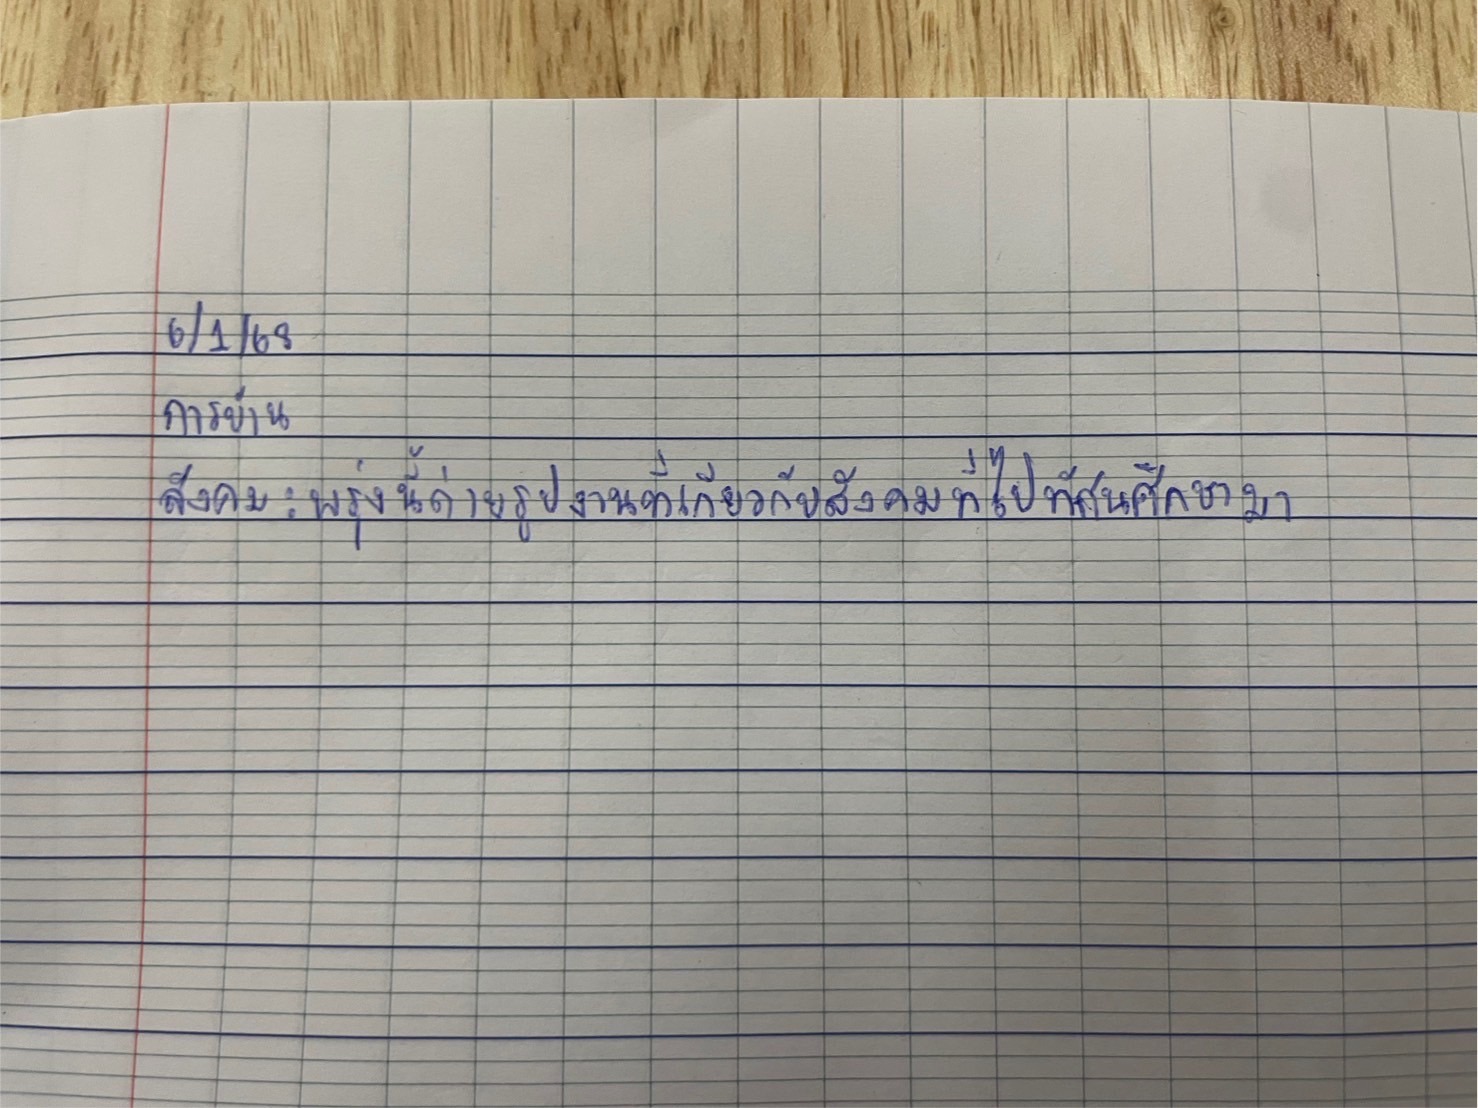 6/1/68
การบ้าน
สังคม : พรุ่งนี้ถ่ายรูปงานที่เกี่ยวกับสังคมที่ไปทัศนศึกษามา